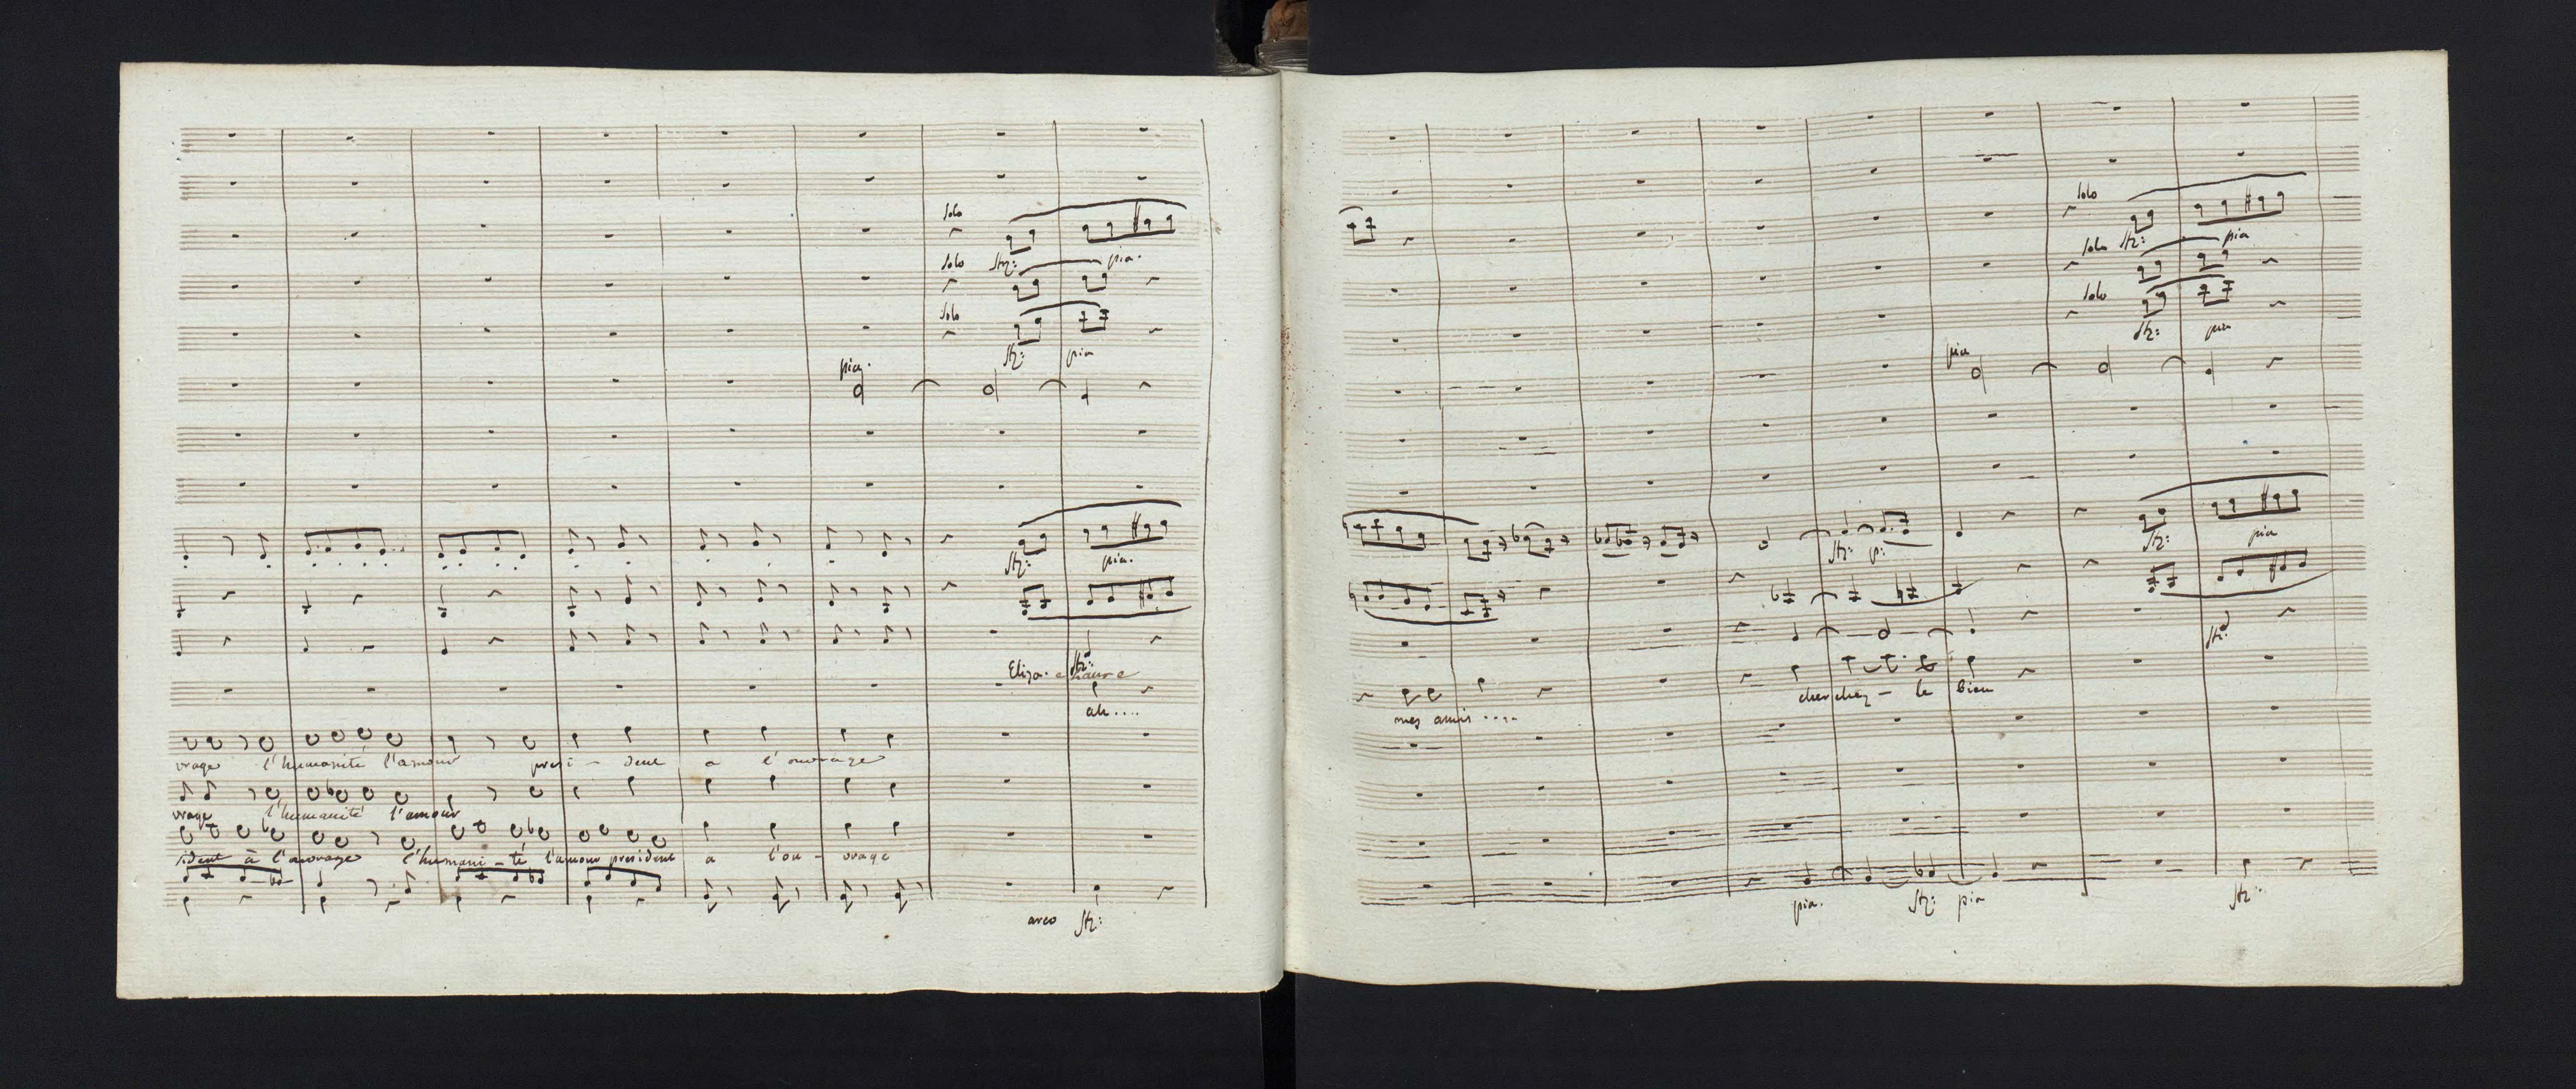 solo
solo stz: pia.
solo
stz: pia
pia.
stz: pia.
stz:
Eliza.
ah....
vrage l'humanité l'amour presi - dent a l'ouvrage
vrage l'humanité l'amour
sident à l'ouvrage l'humani - té l'amour president a l'ou - vrage
arco stz:
solo
solo stz: pia
solo
stz: pia
pia
stz: pia
stz: p:
stz:
cherchez - le bien
mes amis ....
pia. stz: pia stz: